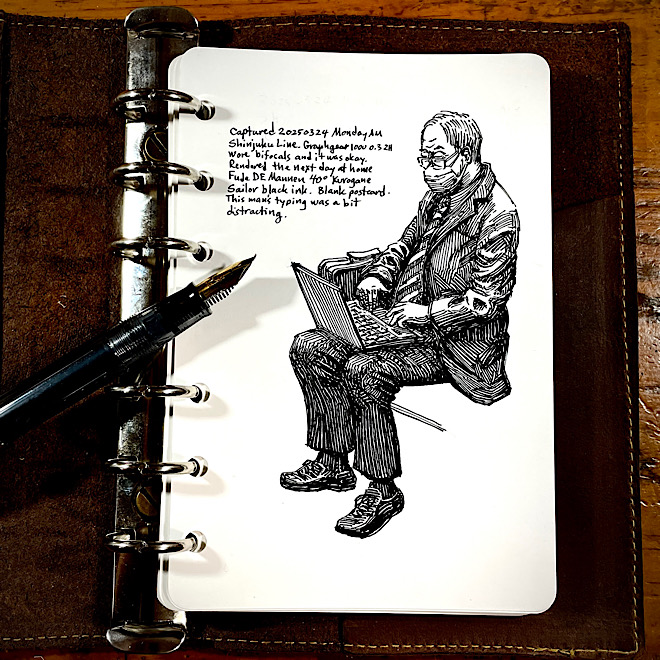 Captured 20250324 Monday AM
Shinjuku Line. Graphgear 1000 0.3 2H
Wore bifocals and it was okay.
Rendered the next day at home
Fude DE Mannen 40° Kurogane
Sailor black ink. Blank postcard.
This man's typing was a bit
distracting.